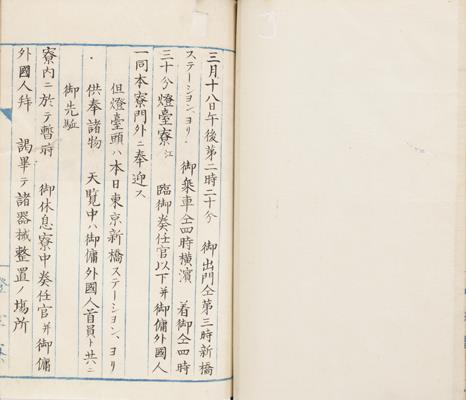 三月十八日午後第二時二十分　御出門仝第三時新橋
ステーション、ヨリ、　御乗車仝四時横濱　着御仝四時
三十分燈臺寮江　臨御奏任官以下并御傭外國人
一同本寮門外ニ奉迎ス
但燈臺頭ハ本日東京新橋ステーション、ヨリ
供奉諸物　天覧中ハ御傭外國人首員ト共ニ
御先駈
寮内ニ於テ暫時　御休息寮中奏任官并御傭
外國人拜　謁畢テ諸器械整置ノ場所